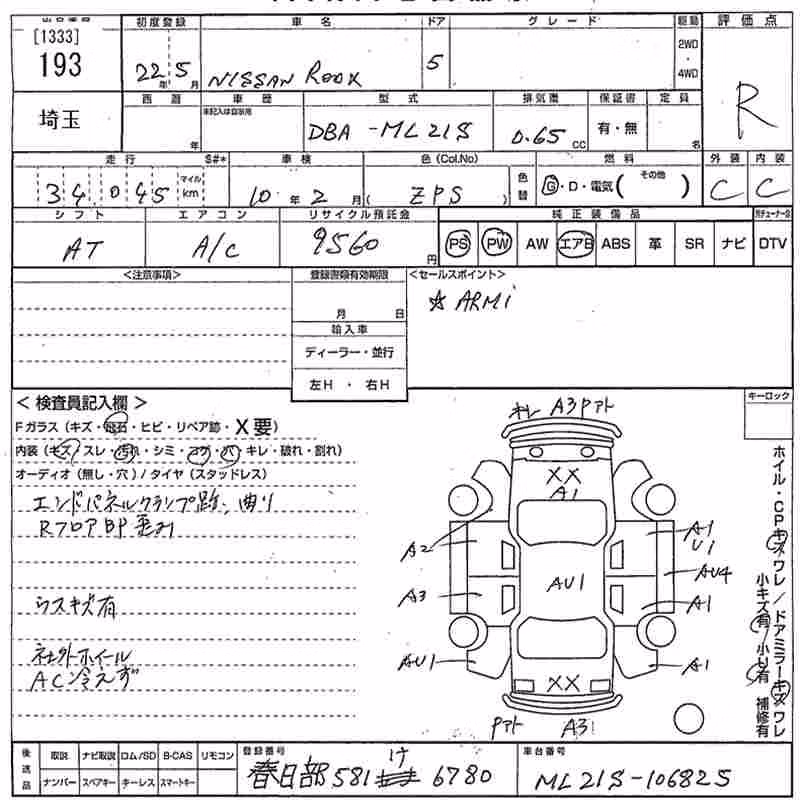 [1333]
193
初度登録
車名
ドア
グレード
駆動
評価点
22年5月
NISSAN ROOX
5
2WD
・
4WD
R
埼玉
西暦
年
車歴
未記入は自家用
型式
DBA-ML21S
排気量
0.65 CC
保証書
有・無
定員
名
走行
S#*
車検
色(Col.No)
燃料
外装
内装
34045
マイル
km
10年2月
( ZPS )
色替
G・D・電気( その他 )
C
C
シフト
エアコン
リサイクル預託金
純正装備品
AT
A/C
9560円
PS
PW
AW
エアB
ABS
革
SR
ナビ
DTV
<注意事項>
登録書類有効期限
<セールスポイント>
月 日
☆ ARMi
輸入車
ディーラー・並行
左H ・ 右H
<検査員記入欄>
キーロック
Fガラス(キズ・飛石・ヒビ・リペア跡・X要)
内装(キズ/スレ・汚れ・シミ・コゲ・穴・キレ・破れ・割れ)
オーディオ(無し・穴)/タイヤ(スタッドレス)
エンドパネルクランプ跡、曲り
RフロアBP歪み
ウスキズ有
社外ホイール
AC冷えず
キレ A3Pアト
XX
A1
A2
A1
U1
AU4
AU1
A3
A1
AU1
A1
XX
Pアト A3
ホイル・CPキズワレ/ドアミラーキズワレ
小キズ有/小U有 補修有
後送品
取説
ナビ取説
ロム/SD
B-CAS
リモコン
ナンバー
スペアキー
キーレス
スマートキー
登録番号
春日部 581 け 6780
車台番号
ML21S-106825